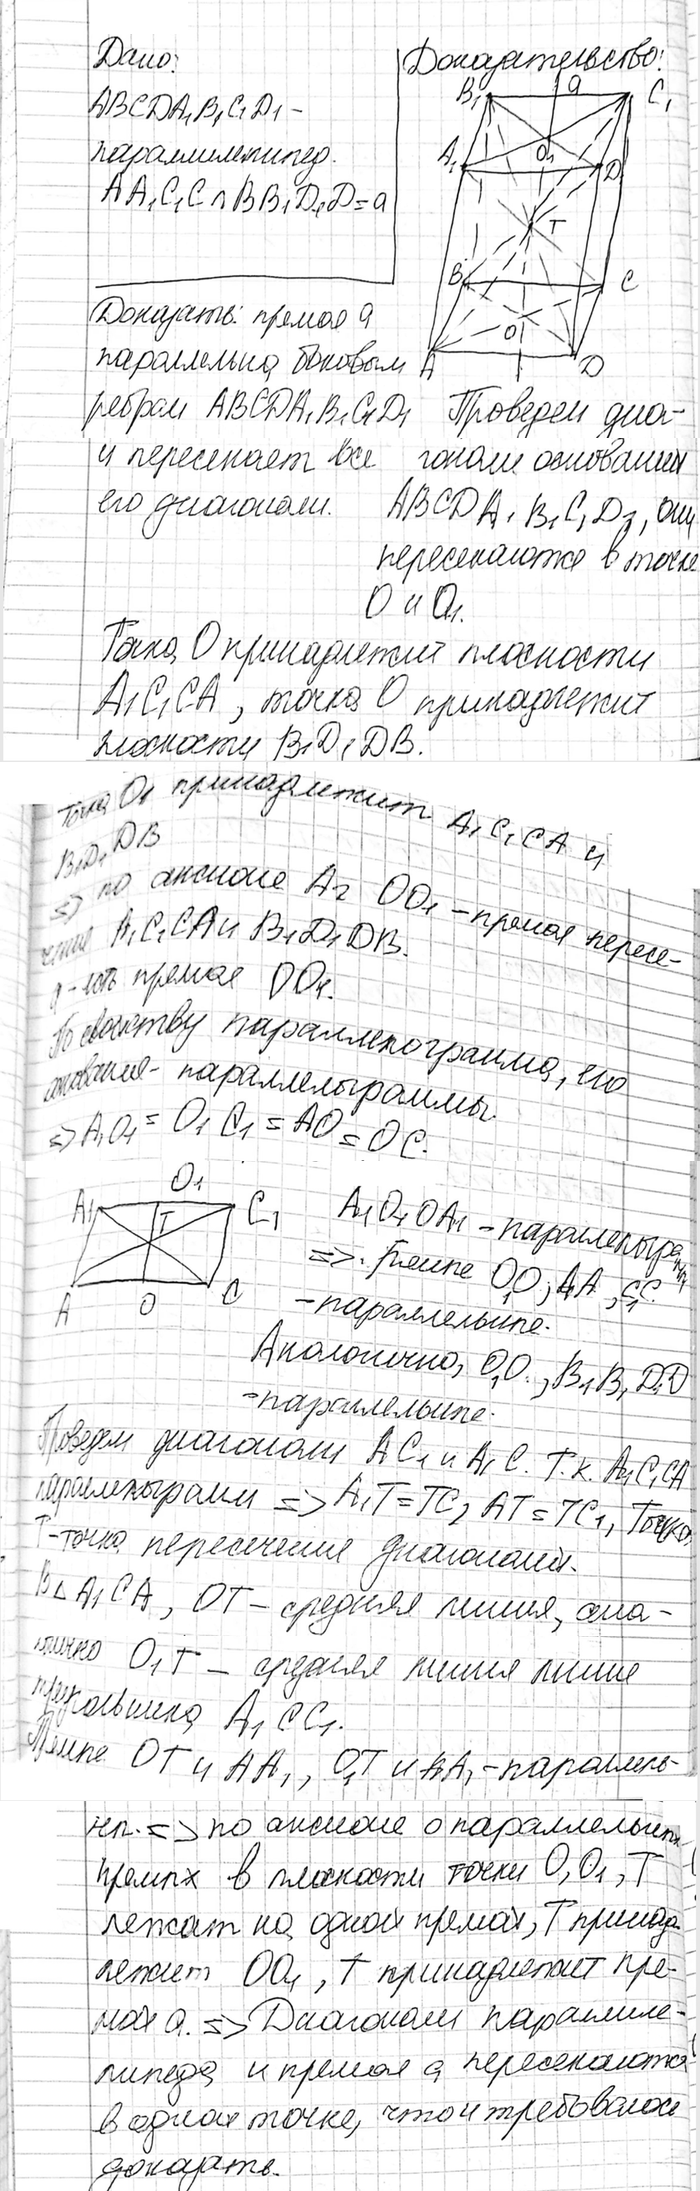 Дано:
ABCDA₁B₁C₁D₁ -
параллелепипед.
AA₁C₁C ∩ BB₁D₁D = a
Доказать: прямая a
параллельна боковым
ребрам ABCDA₁B₁C₁D₁
и пересекает все
его диагонали.
Доказательство:
B₁ a C₁
A₁ O₁ D₁
T
B C
O
A D
Проведем диа-
гонали основания
ABCD A₁B₁C₁D₁, они
пересекаются в точке
O и O₁.
Точка O принадлежит плоскости
A₁C₁CA, точка O принадлежит
плоскости B₁D₁DB.
Точка O₁ принадлежит A₁C₁CA и
B₁D₁DB
=> по аксиоме A₂ OO₁ - прямая пересе-
чения A₁C₁CA и B₁D₁DB.
a - есть прямая OO₁.
По свойству параллелограмма, его
основания - параллелограммы
=> A₁O₁ = O₁C₁ = AO = OC.
O₁
A₁ T C₁
A O C
A₁O₁OA₁ - параллелограмм
=> Прямые O₁O, A₁A, C₁C
- параллельные.
Аналогично, O₁O, B₁B, D₁D
- параллельные.
Проведем диагонали AC₁ и A₁C. Т.к. A₁C₁CA
параллелограмм => A₁T = TC, AT = TC₁, Точка
T - точка пересечения диагоналей.
В Δ A₁CA, OT - средняя линия, ана-
логично O₁T - средняя линия линия
треугольника A₁CC₁.
Прямые OT и AA₁, O₁T и AA₁ - параллель-
ны. => по аксиоме о параллельных
прямых в плоскости точки O, O₁, T
лежат на одной прямой, T принад-
лежит OO₁, T принадлежит пря-
мой a. => Диагонали параллеле-
пипеда и прямая a пересекаются
в одной точке, что и требовалось
доказать.